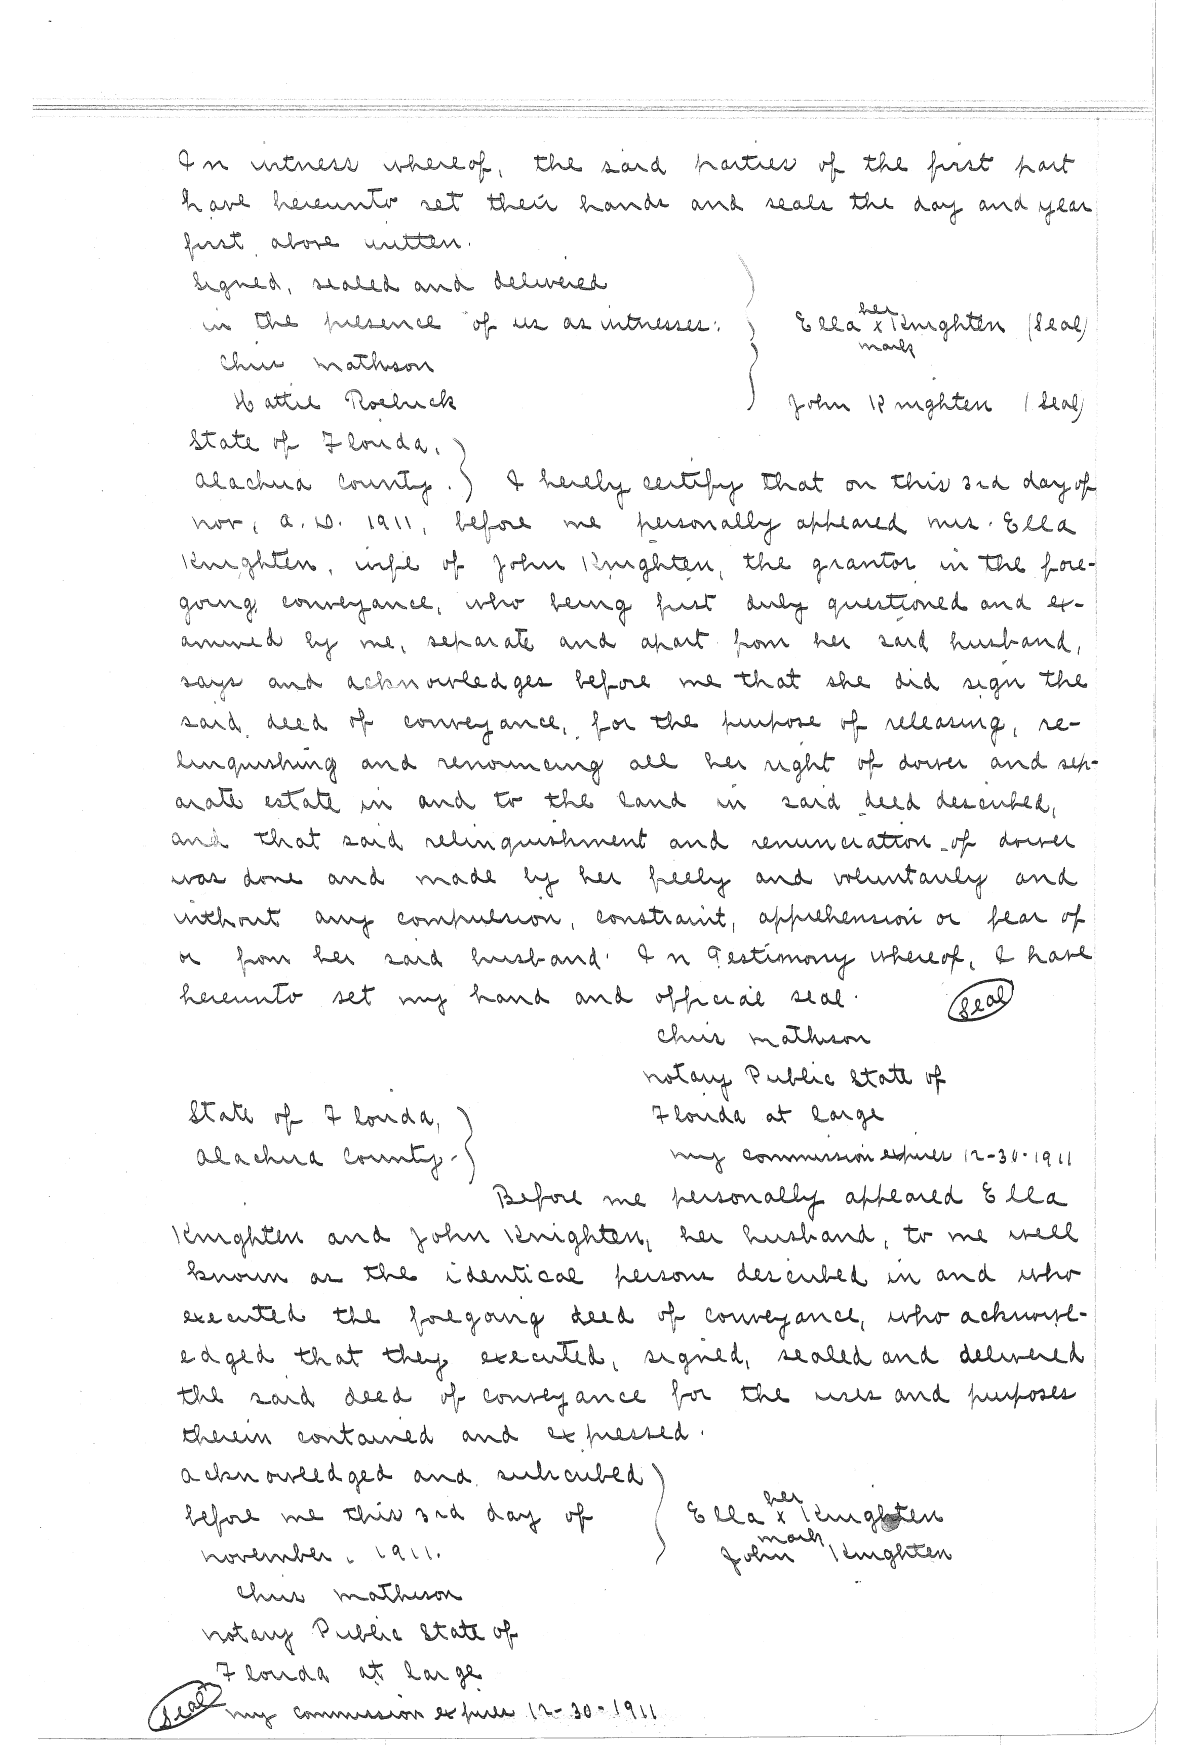 In witness whereof, the said parties of the first part
have hereunto set their hands and seals the day and year
first above written.
Signed, sealed and delivered
in the presence of us as witnesses:
her
Ella x Knighten (Seal)
mark
Chris Matheson
Hattie Roebuck
John Knighten (Seal)
State of Florida,
Alachua County. } I hereby certify that on this 3rd day of
Nov, A.D. 1911, before me personally appeared Mrs. Ella
Knighten, wife of John Knighten, the grantor in the fore-
going conveyance, who being first duly questioned and ex-
amined by me, separate and apart from her said husband,
says and acknowledges before me that she did sign the
said deed of conveyance, for the purpose of releasing, re-
linquishing and renouncing all her right of dower and sep-
arate estate in and to the land in said deed described,
and that said relinquishment and renunciation of dower
was done and made by her freely and voluntarily and
without any compulsion, constraint, apprehension or fear of
or from her said husband. In Testimony whereof, I have
hereunto set my hand and official seal. Seal
Chris Matheson
Notary Public State of
Florida at large
my commission expires 12-30-1911
State of Florida,
Alachua County. }
Before me personally appeared Ella
Knighten and John Knighten, her husband, to me well
known as the identical persons described in and who
executed the foregoing deed of conveyance, who acknowl-
edged that they executed, signed, sealed and delivered
the said deed of conveyance for the uses and purposes
therein contained and expressed.
Acknowledged and subscribed
before me this 3rd day of
November, 1911.
her
Ella x Knighten
mark
John Knighten
Chris Matheson
Notary Public State of
Florida at large
Seal my commission expires 12-30-1911